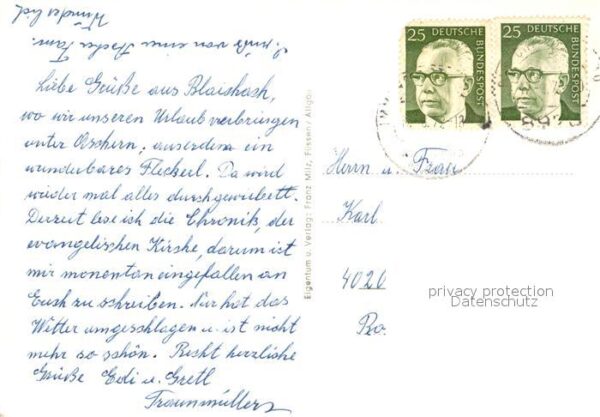 Liebe Grüße aus Blaishash,
wo wir unseren Urlaub verbringen
unter Oschern, ausserdem ein
wunderbares Fleckerl. Da wird
wieder mal alles durchgewebett.
Derzeit lese ich die Chronik, der
evangelischen Kirche, darum ist
mir monentan eingefallen an
Euch zu schreiben. Nur hat das
Wetter umgeschlagen u. ist nicht
mehr so schön. Recht herzliche
Grüße Edi u. Gretl
Traunmüllers
Eigentum u. Verlag: Franz Milz, Füssen/Allgäu
25 DEUTSCHE BUNDESPOST
25 DEUTSCHE BUNDESPOST
Herrn u. Frau
Karl
4020
privacy protection
Datenschutz